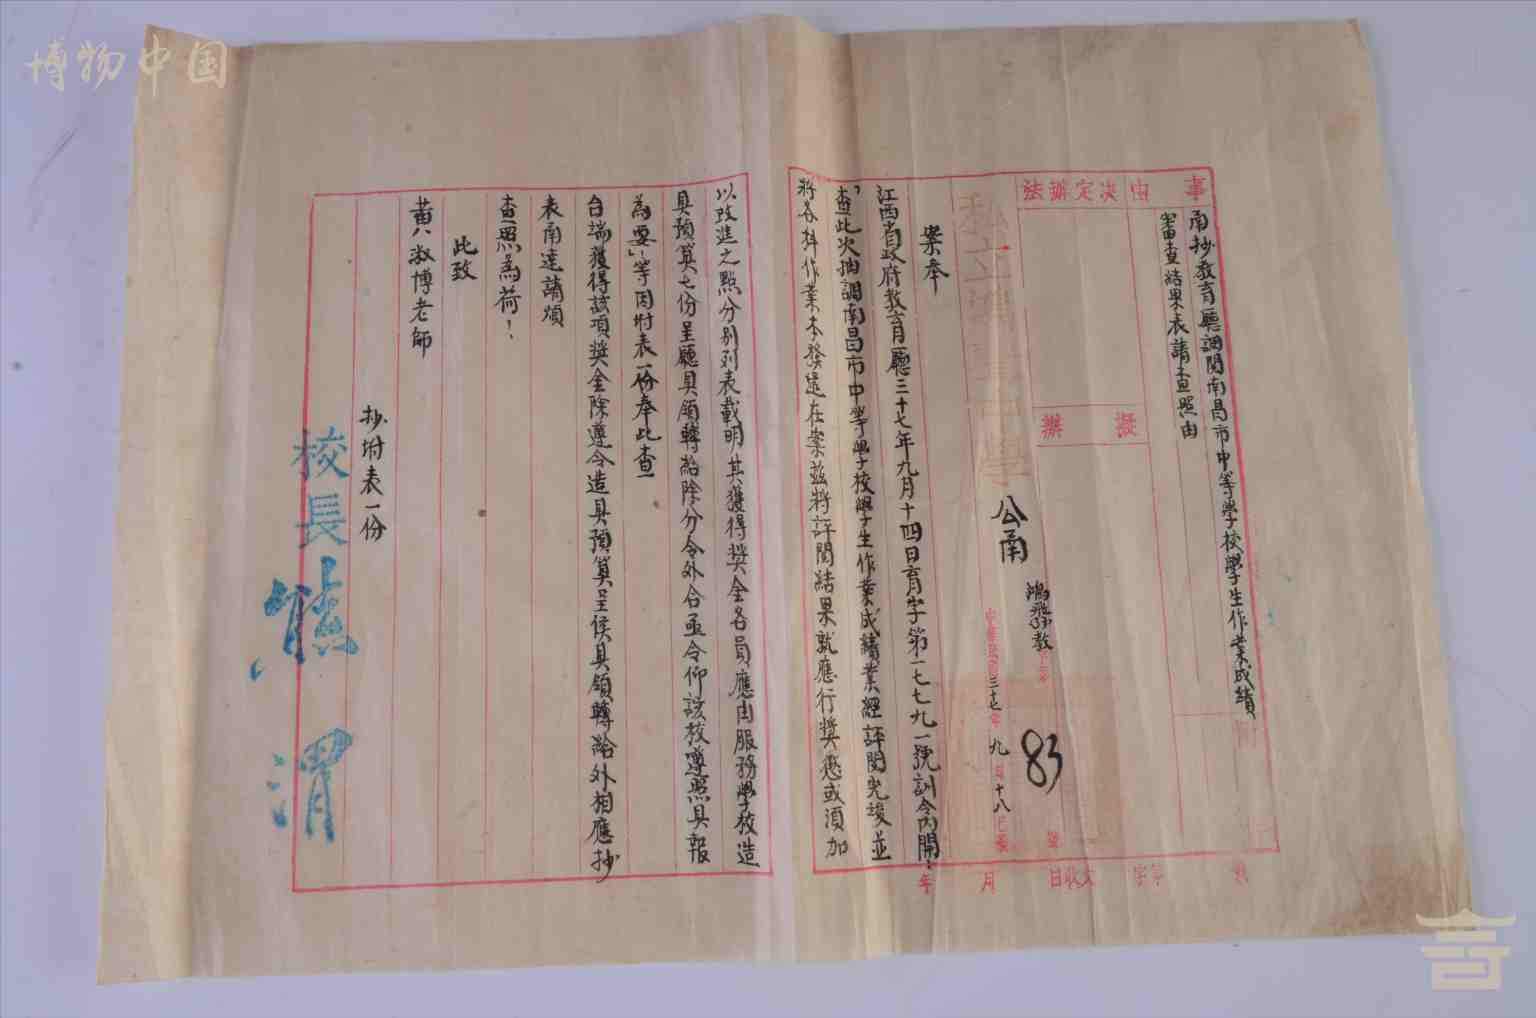 博物中国
事由
函抄教育廳調閱南昌市中等學校學生作業成績
審查結果表請查照由
決定辦法
擬辦
公函
鴻飛教
83
三十七年九月十八日
年 月 日收文 字 號
案奉
江西省政府教育廳三十七年九月十四日育字第一七七九一號訓令內開：
查此次抽調南昌市中等學校學生作業成績業經評閱完竣並
將各科作業本發還在案茲將評閱結果就應行獎懲或須加
以改進之點分別列表載明其獲得獎金各員應由服務學校造
具預算七份呈廳具領轉給除分令外合亟令仰該校遵照具報
為要」等因附表一份奉此查
台端獲得該項獎金除遵令造具預算呈俟具領轉給外相應抄
表函達請煩
查照為荷！
此致
黃淑博老師
抄附表一份
校長熊渭